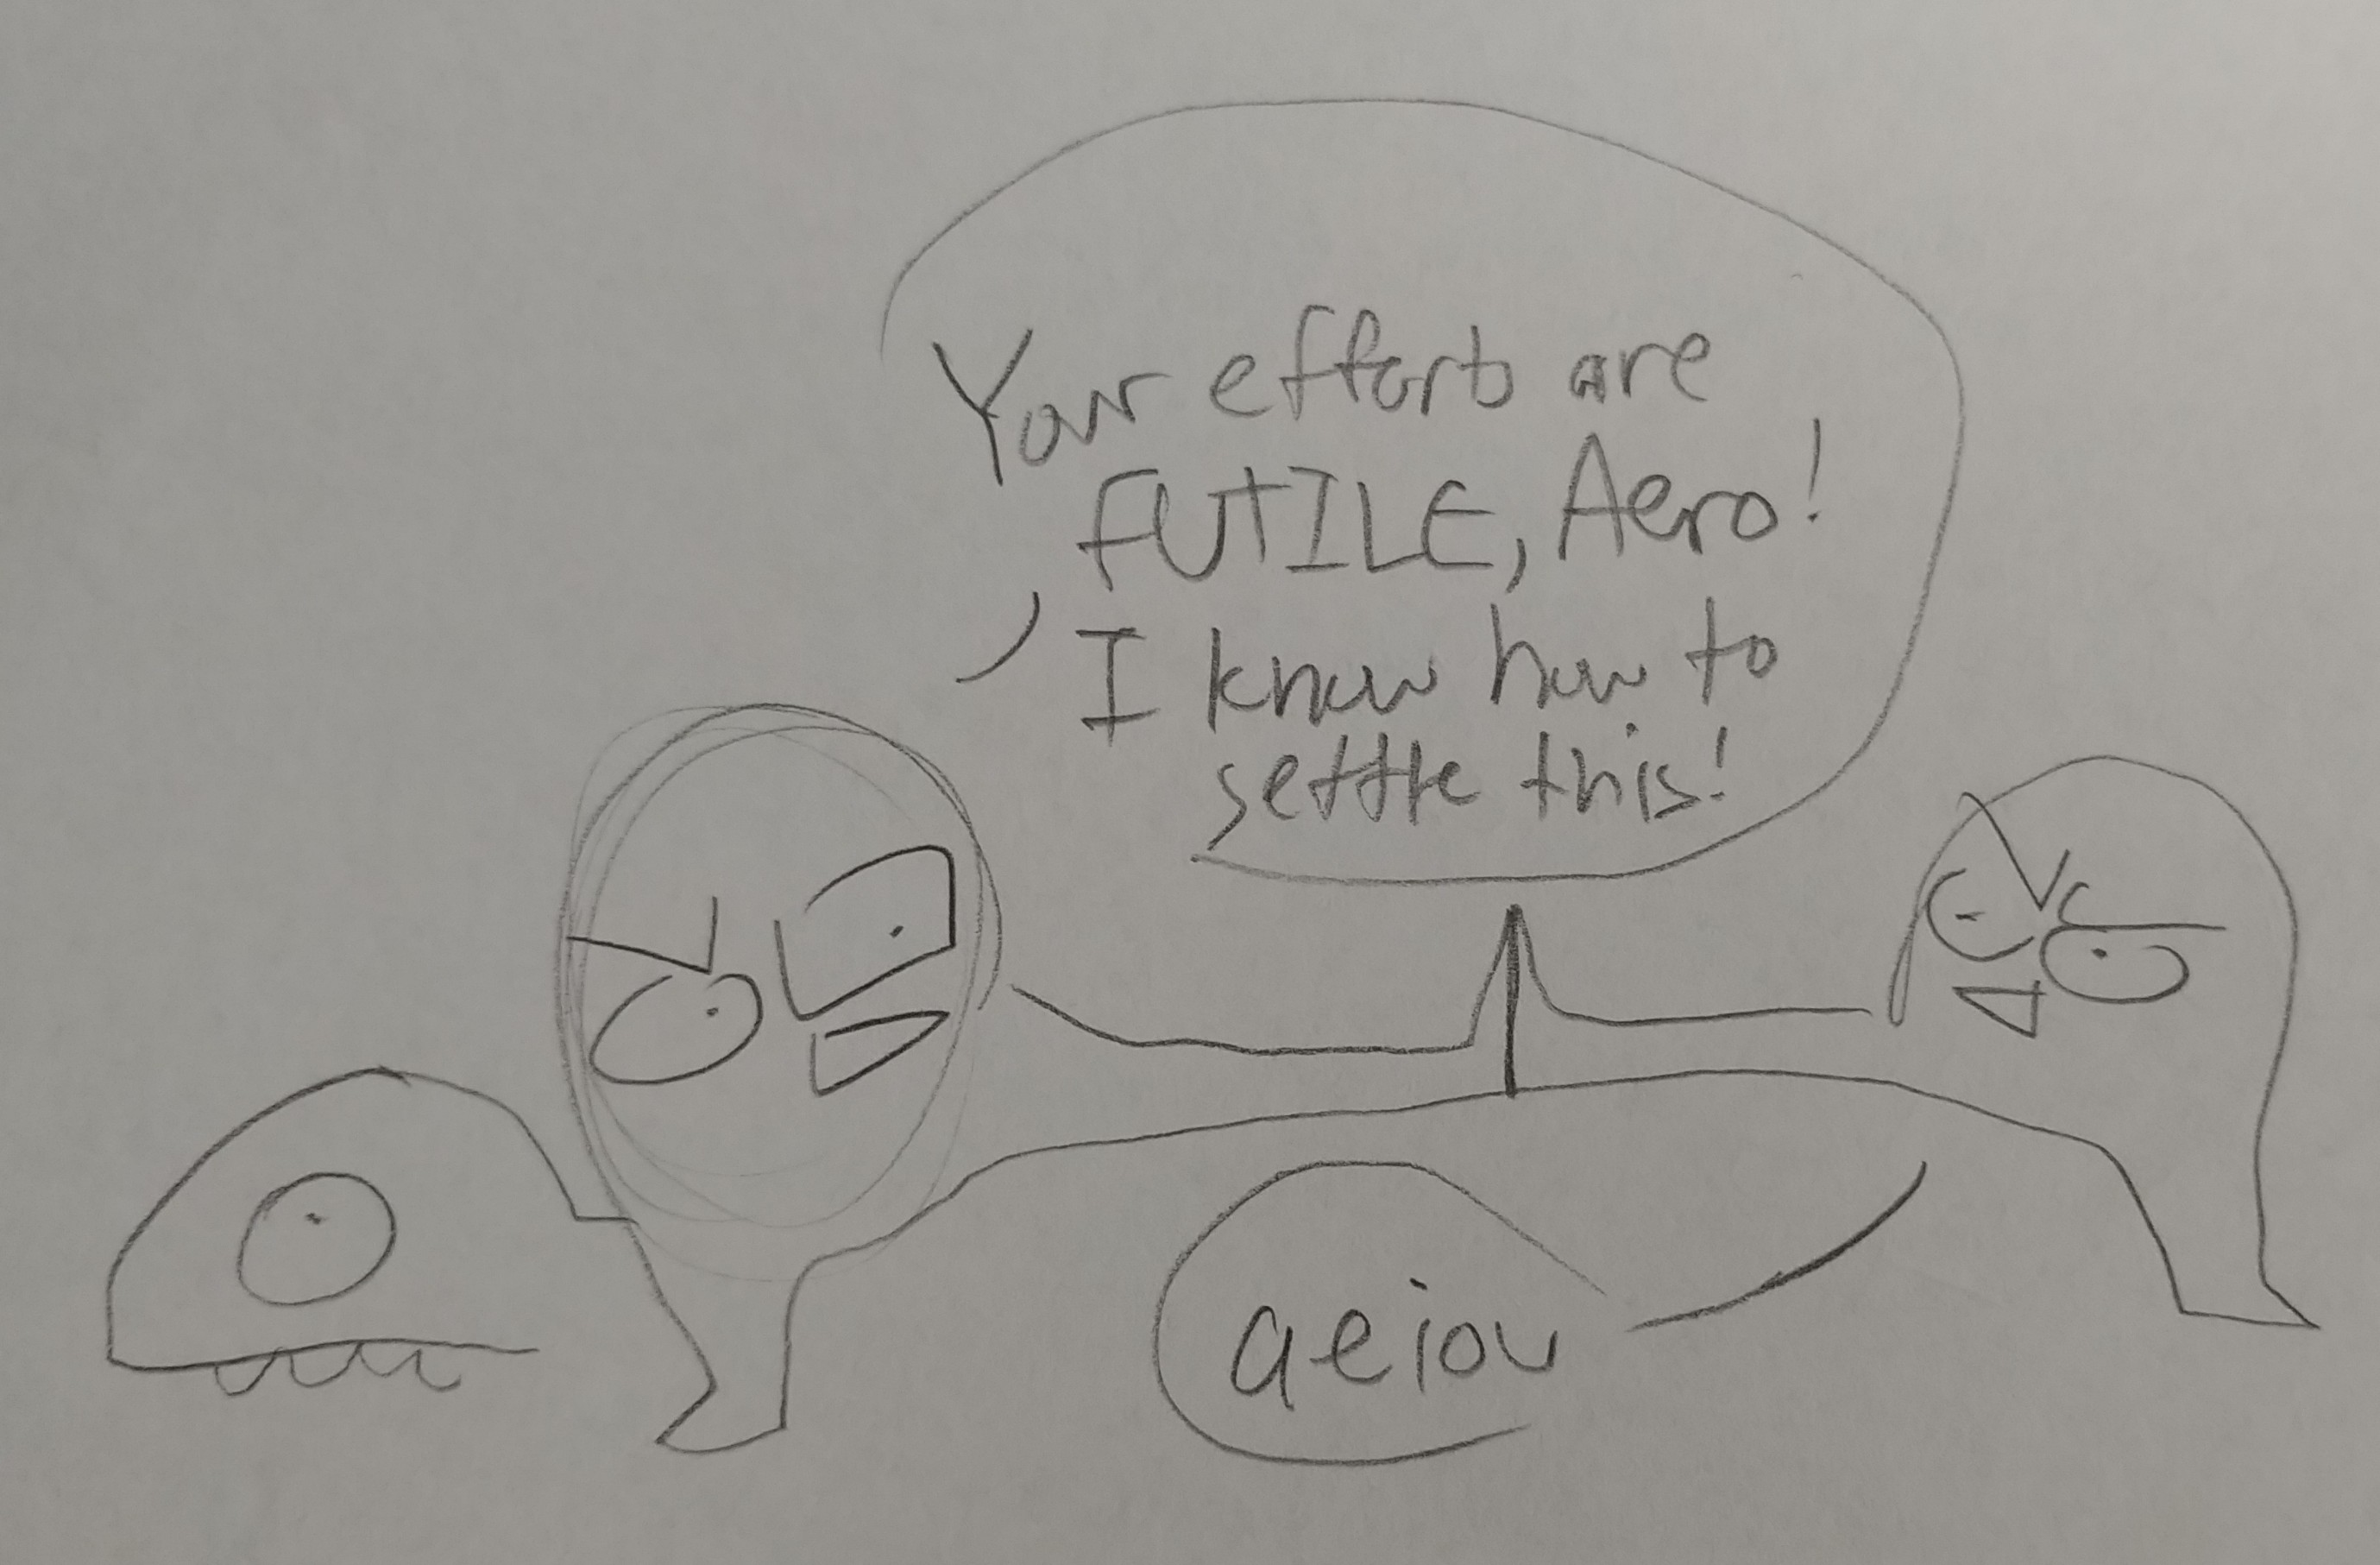 Your efforts are
FUTILE, Aero!
I know how to
settle this!
aeiou